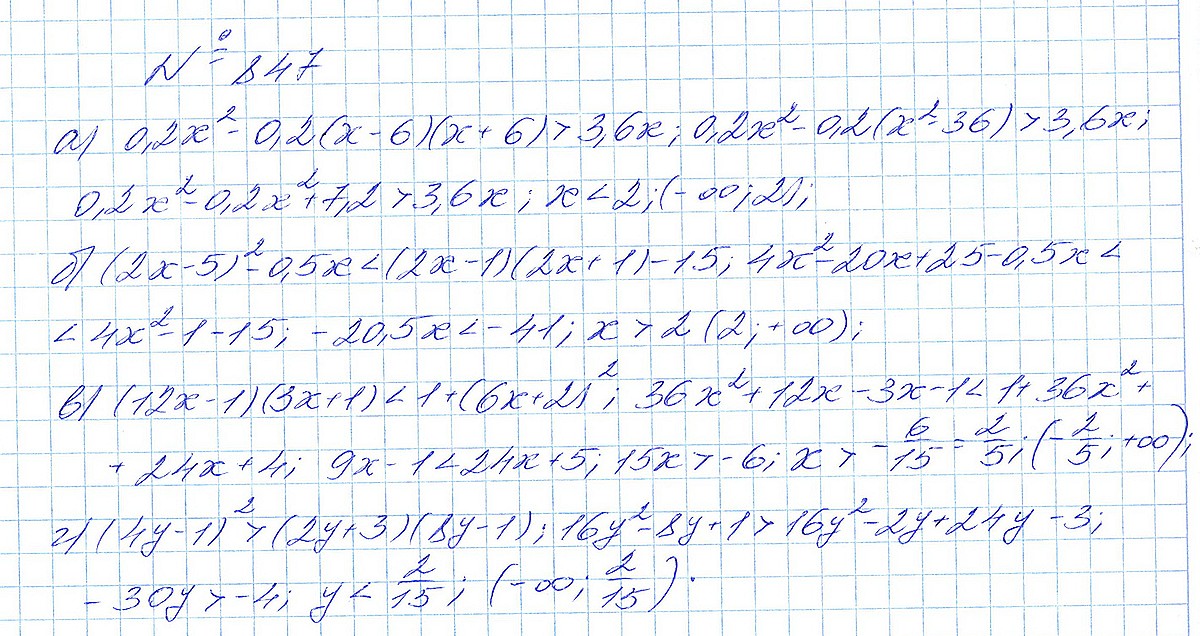 № 847
а) 0,2x² - 0,2(x-6)(x+6) > 3,6x; 0,2x² - 0,2(x²-36) > 3,6x;
0,2x² - 0,2x² + 7,2 > 3,6x; x < 2; (-∞; 2);
б) (2x-5)² - 0,5x < (2x-1)(2x+1) - 15; 4x² - 20x + 25 - 0,5x <
< 4x² - 1 - 15; - 20,5x < - 41; x > 2 (2; +∞);
в) (12x-1)(3x+1) < 1 + (6x+2)²; 36x² + 12x - 3x - 1 < 1 + 36x² +
+ 24x + 4; 9x - 1 < 24x + 5; 15x > -6; x > - 6/15 = 2/5; (- 2/5; +∞);
г) (4y-1)² > (2y+3)(8y-1); 16y² - 8y + 1 > 16y² - 2y + 24y - 3;
- 30y > -4; y < 2/15; (-∞; 2/15).